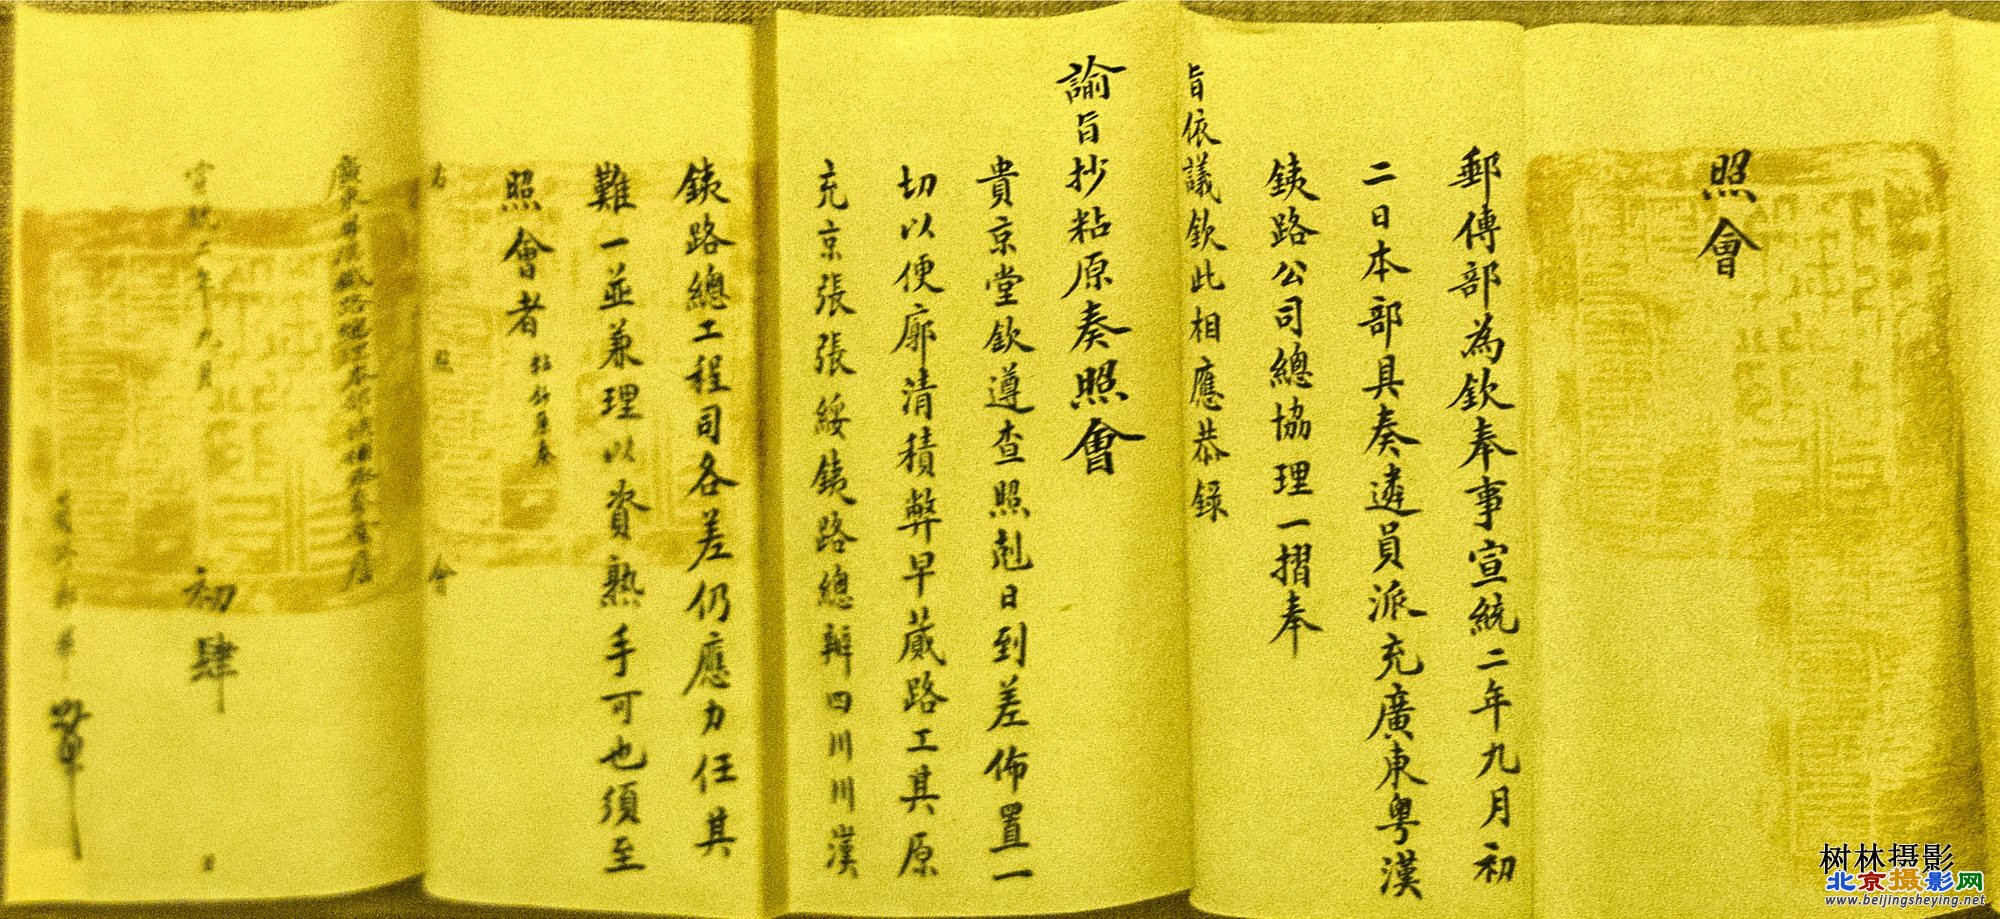 照會
郵傳部為欽奉事宣統二年九月初
二日本部具奏遴員派充廣東粵漢
鐵路公司總協理一摺奉
旨依議欽此相應恭錄
諭旨抄粘原奏照會
貴京堂欽遵查照尅日到差佈置一
切以便廓清積弊早蕆路工其原
充京張張綏鐵路總辦四川川漢
鐵路總工程司各差仍應力任其
難一並兼理以資熟手可也須至
照會者 粘鈔原奏
右 照 會
宣統二年九月 初肆 日
树林摄影
北京摄影网
www.beijingsheying.net